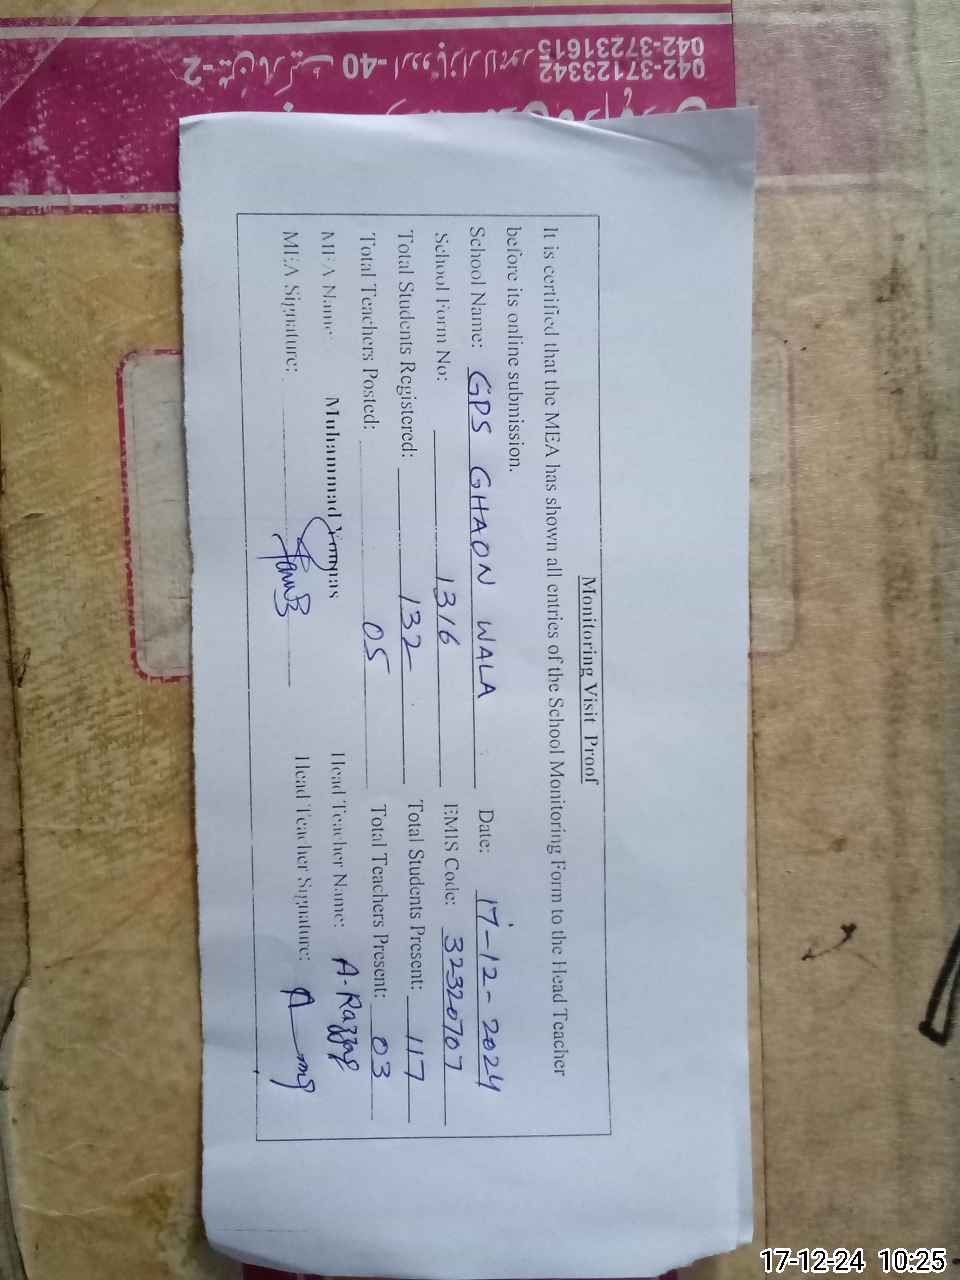 042-37231615
042-37123342
2-میاں مارکیٹ 40-اردو بازار لاہور
Monitoring Visit Proof
It is certified that the MEA has shown all entries of the School Monitoring Form to the Head Teacher
before its online submission.
School Name: GPS GHAON WALA Date: 17-12-2024
School Form No: 1316 EMIS Code: 32320707
Total Students Registered: 132 Total Students Present: 117
Total Teachers Posted: 05 Total Teachers Present: 03
MEA Name: Muhammad Younas Head Teacher Name: A-Razzaq
MEA Signature: Head Teacher Signature:
17-12-24 10:25